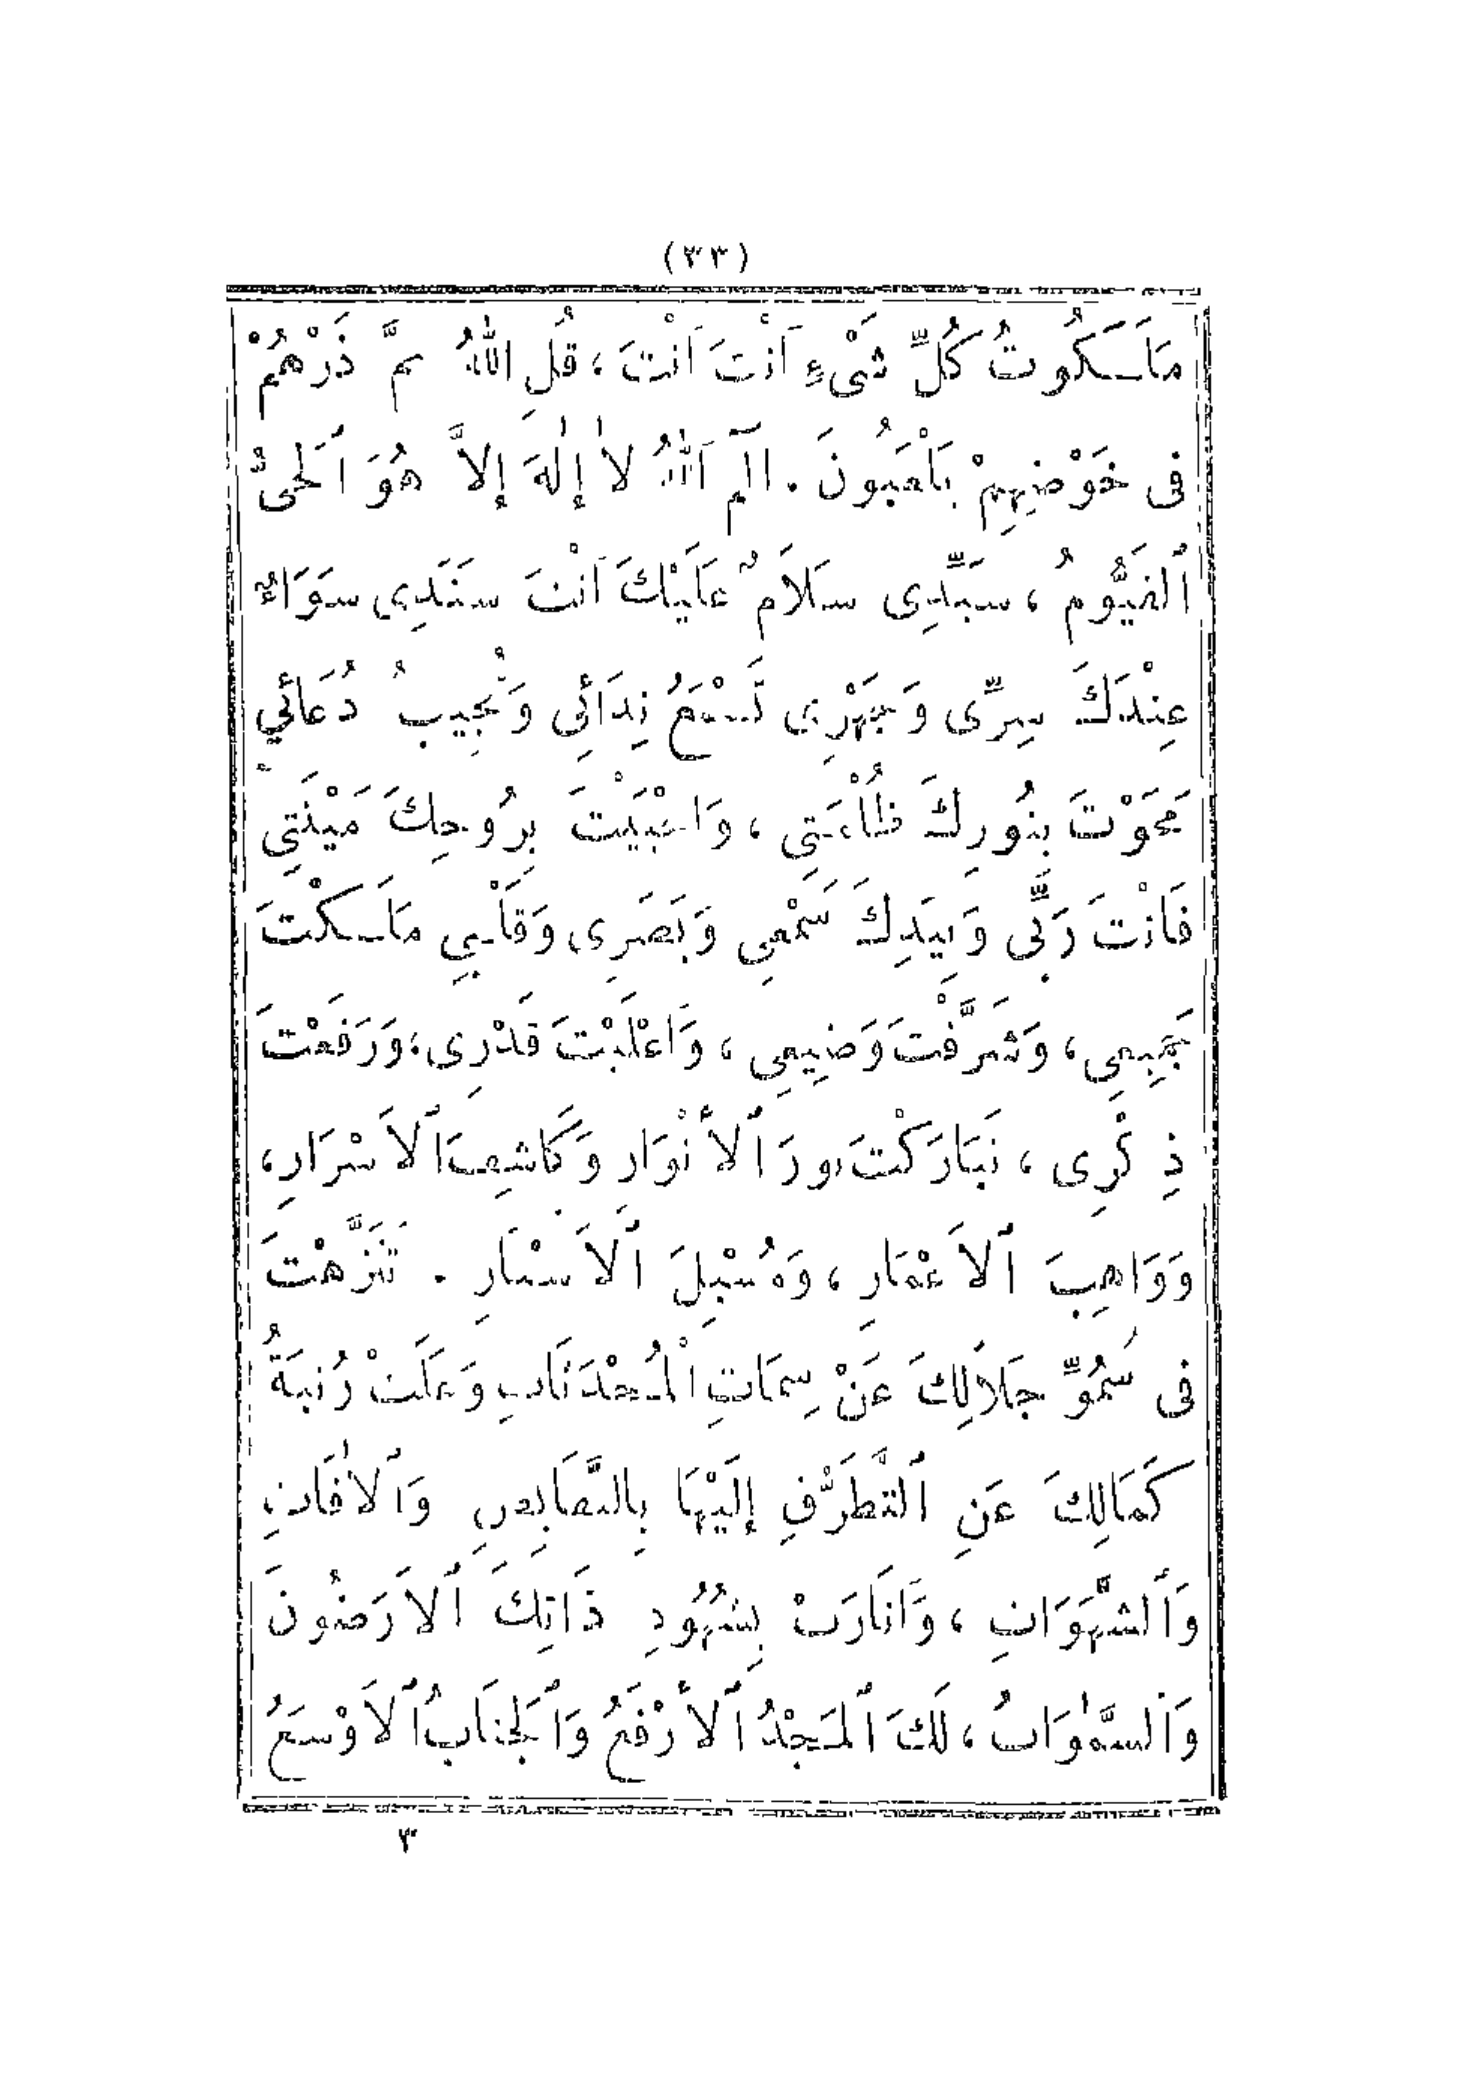 (٣٣)
مَلَكُوتُ كُلِّ شَىْءٍ اَنْتَ اَنْتَ ، قُلِ اللّٰهُ ثُمَّ ذَرْهُمْ
فِى خَوْضِهِمْ يَلْعَبُونَ . الٓمٓ اَللّٰهُ لاٰ إِلٰهَ إِلاَّ هُوَ ٱلْحَىُّ
ٱلْقَيُّومُ ، سَيِّدِى سَلاَمٌ عَلَيْكَ اَنْتَ سَنَدِى سَوَاءٌ
عِنْدَكَ سِرِّى وَجَهْرِى تَسْمَعُ نِدَائِى وَتُجِيبُ دُعَائِي
مَحَوْتَ بِنُورِكَ ظُلْمَتِى ، وَاَحْيَيْتَ بِرُوحِكَ مَيْتَتِى
فَاَنْتَ رَبِّى وَبِيَدِكَ سَمْعِى وَبَصَرِى وَقَلْبِى مَلَكْتَ
جَمِيعِى ، وَشَرَّفْتَ وَضِيعِى ، وَاَعْلَيْتَ قَدْرِى ، وَرَفَعْتَ
ذِكْرِى ، تَبَارَكْتَ نُورَ ٱلأَنْوَارِ وَكَاشِفَ ٱلاَسْرَارِ ،
وَوَاهِبَ ٱلاَعْمَارِ ، وَمُسْبِلَ ٱلاَسْتَارِ . تَنَزَّهْتَ
فِى سُمُوِّ جَلاَلِكَ عَنْ سِمَاتِ الْمُحْدَثَاتِ وَعَلَتْ رُتْبَةُ
كَمَالِكَ عَنِ ٱلتَّطَرُّقِ إِلَيْهَا بِالنَّقَايِصِ وَٱلاٰفَاتِ
وَٱلشَّهَوَاتِ ، وَاَنَارَتْ بِشُهُودِ ذَاتِكَ ٱلاَرَضُونَ
وَٱلسَّمٰوَاتُ ، لَكَ ٱلْمَجْدُ ٱلأَرْفَعُ وَٱلْجَنَابُ ٱلاَوْسَعُ
٣